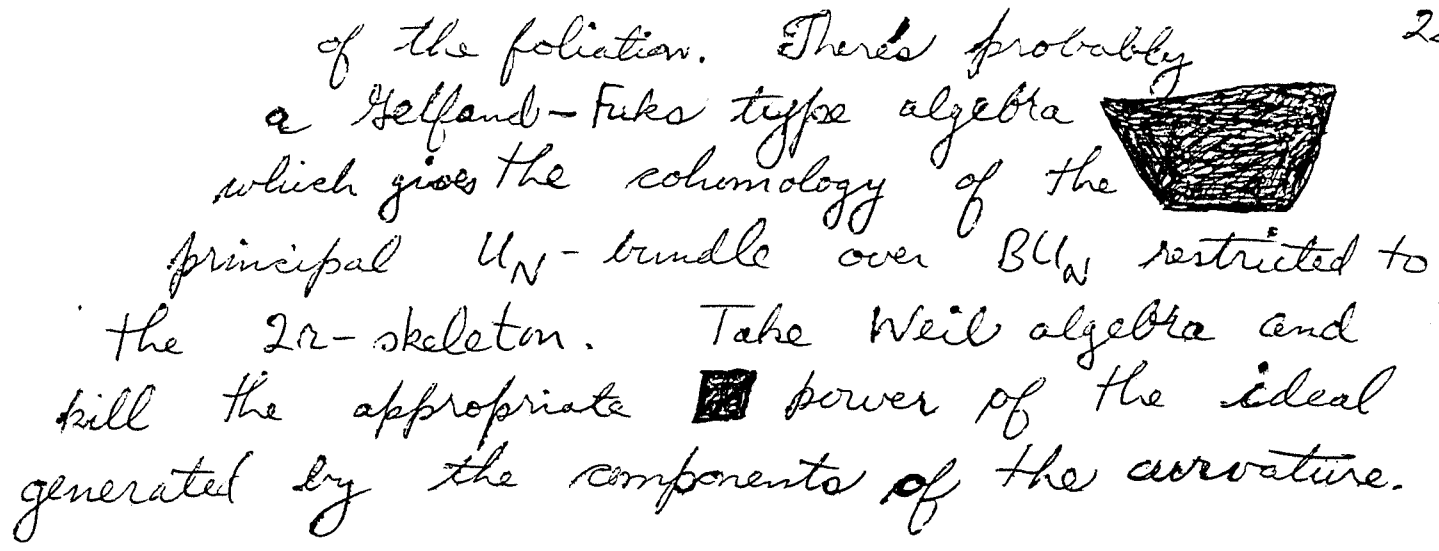 of the foliation. There's probably
a Gelfand-Fuks type algebra
which gives the cohomology of the
principal U_N-bundle over BU_N restricted to
the 2r-skeleton. Take Weil algebra and
kill the appropriate power of the ideal
generated by the components of the curvature.